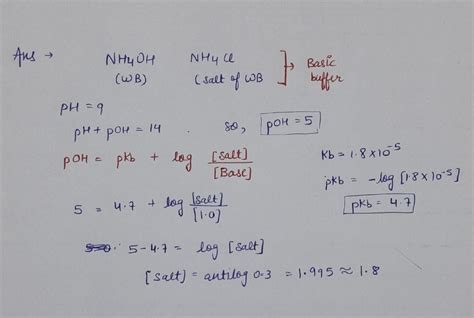 Ans → NH4OH NH4Cl → Basic buffer
(WB) (Salt of WB
pH = 9
pH + pOH = 14 . so, pOH = 5
pOH = pKb + log [Salt]/[Base]
Kb = 1.8 × 10⁻⁵
pKb = -log [1.8 × 10⁻⁵]
pKb = 4.7
5 = 4.7 + log [Salt]/[1.0]
5 - 4.7 = log [Salt]
[Salt] = antilog 0.3 = 1.995 ≈ 1.8